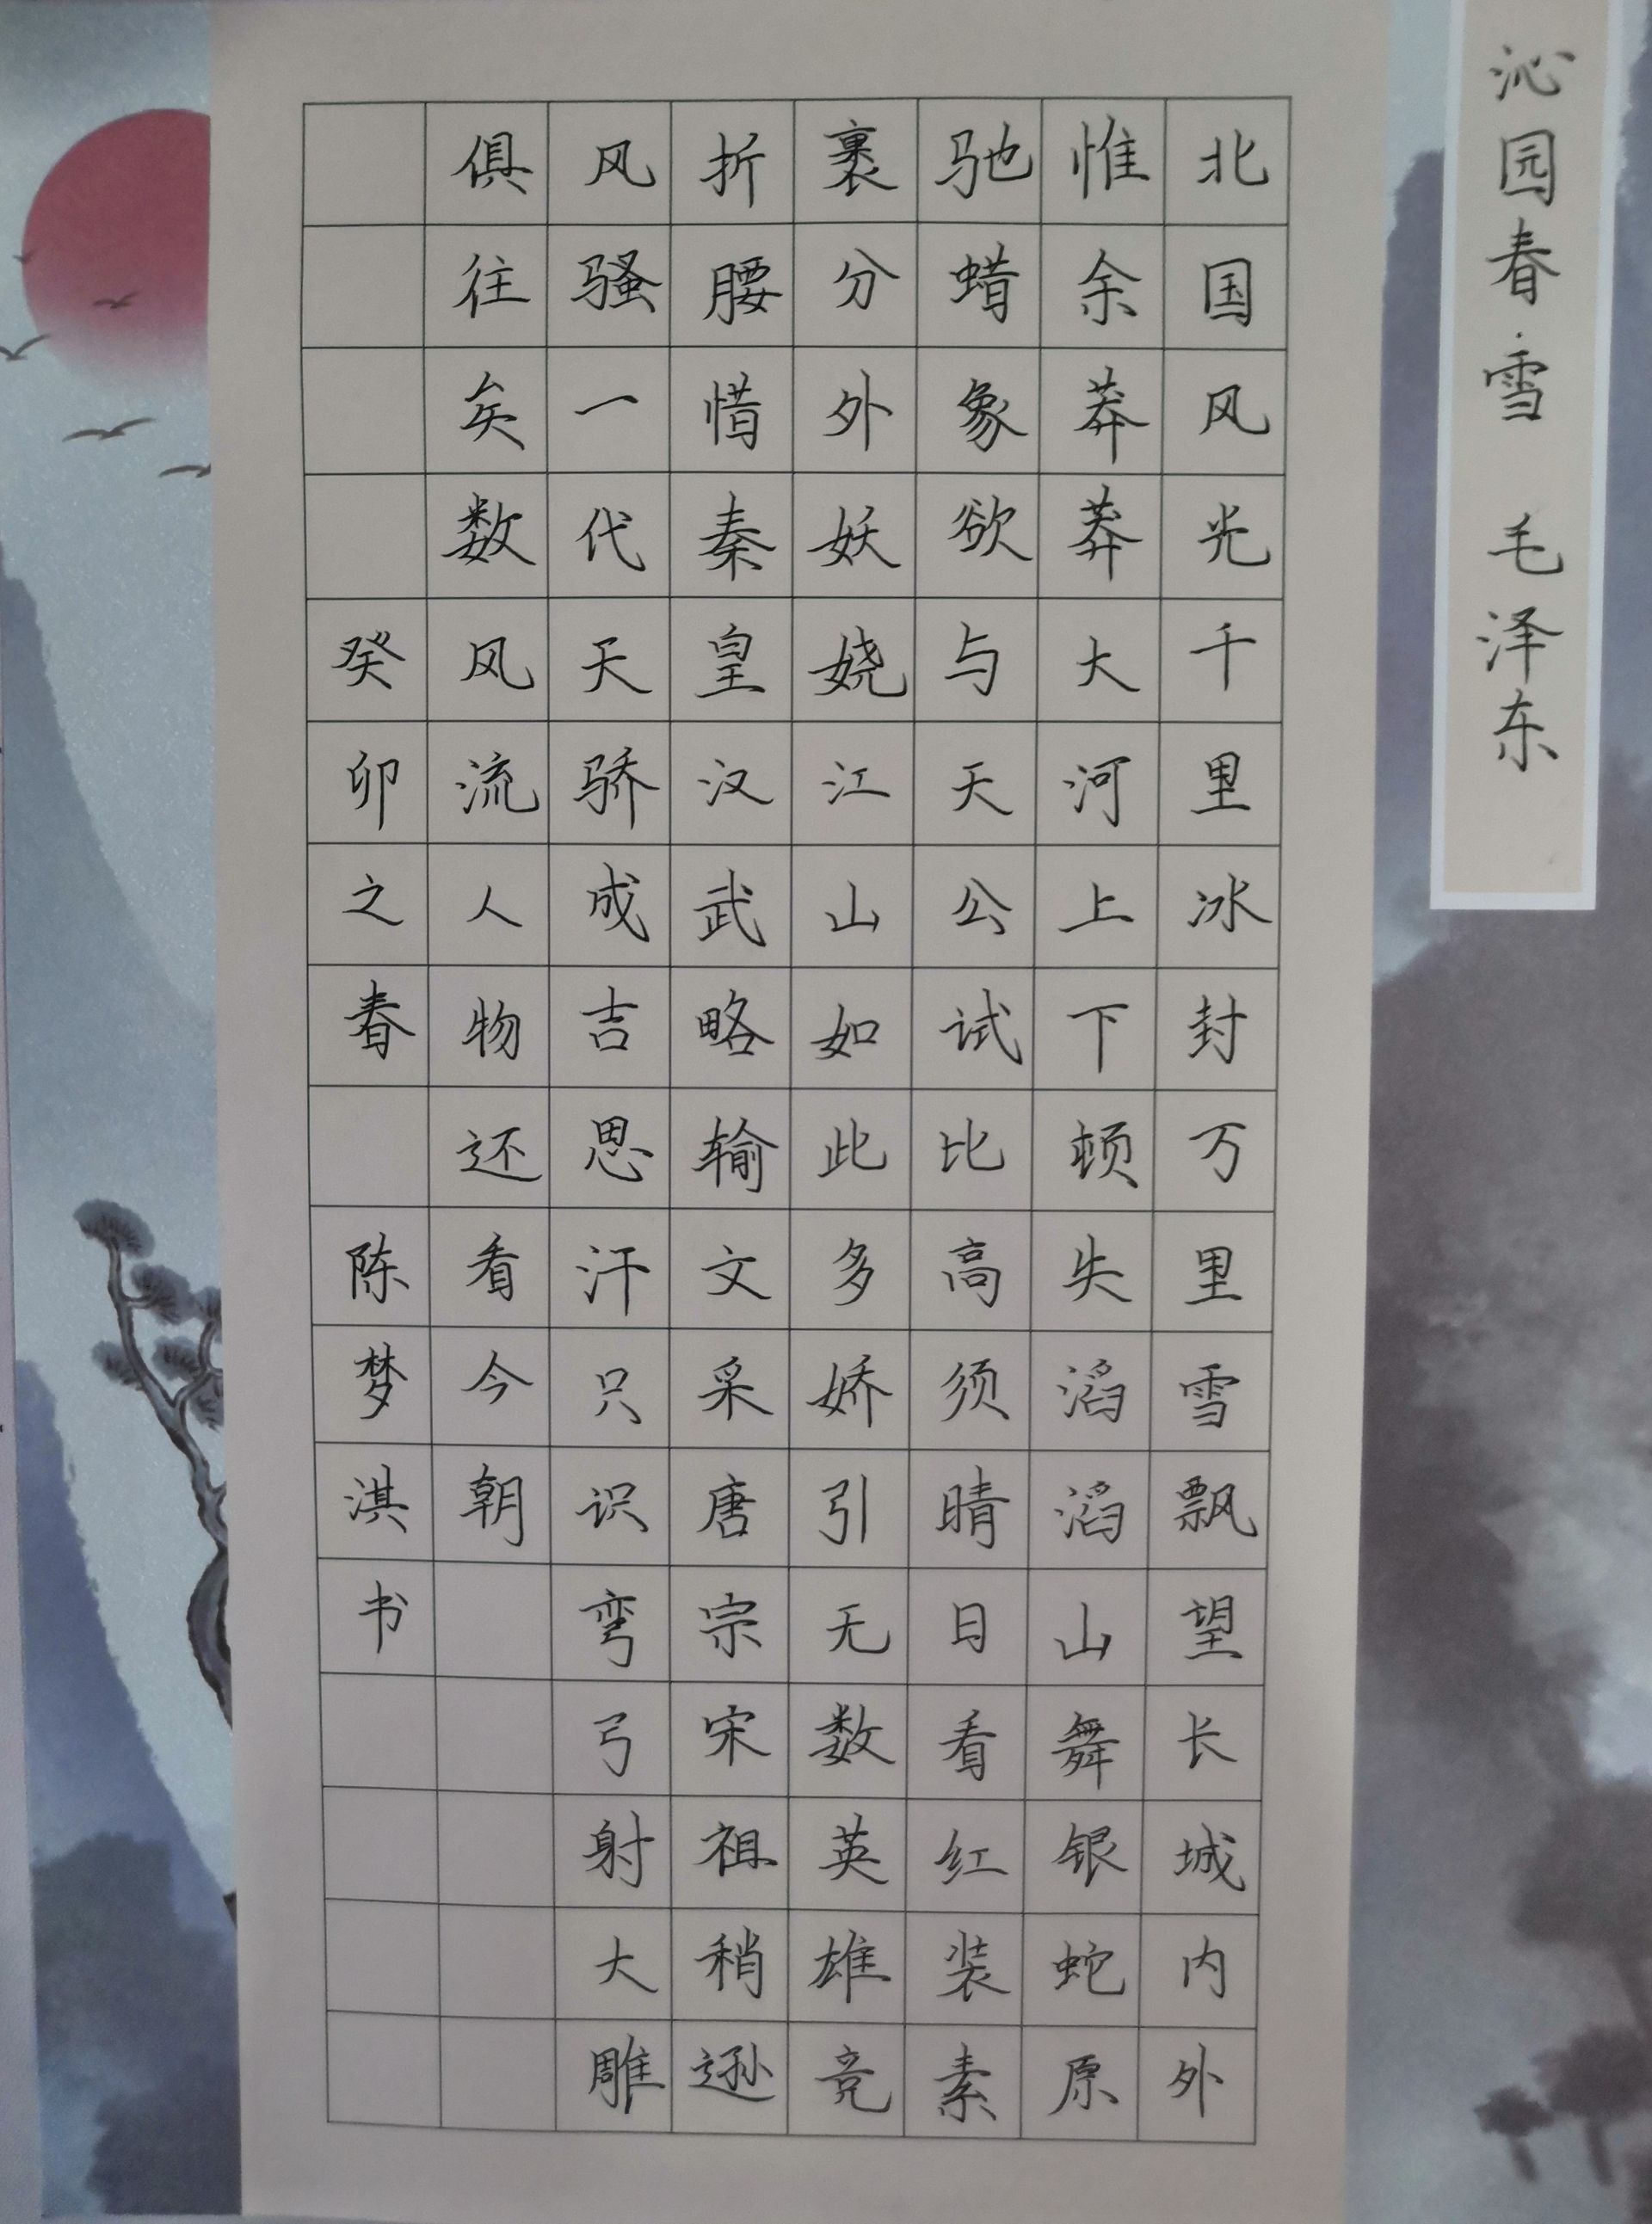 沁园春·雪 毛泽东
北国风光千里冰封万里雪飘望长城内外
惟余莽莽大河上下顿失滔滔山舞银蛇原
驰蜡象欲与天公试比高须晴日看红装素
裹分外妖娆江山如此多娇引无数英雄竞
折腰惜秦皇汉武略输文采唐宗宋祖稍逊
风骚一代天骄成吉思汗只识弯弓射大雕
俱往矣数风流人物还看今朝
癸卯之春 陈梦淇书